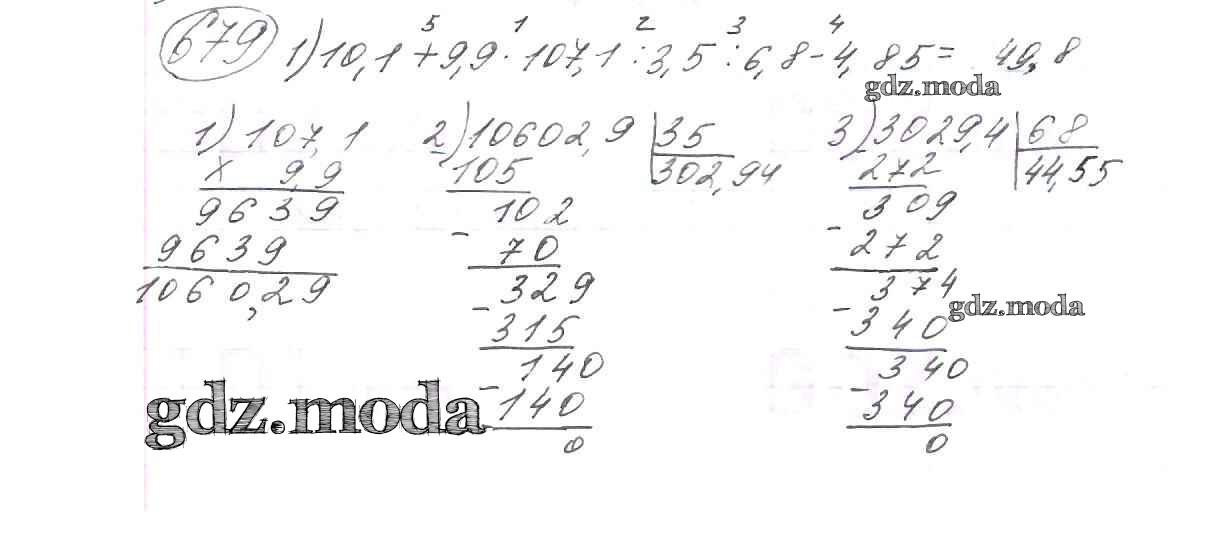 5 1 2 3 4
679 1) 10,1 + 9,9 · 107,1 : 3,5 : 6,8 - 4,85 = 49,8
gdz.moda
1) 107,1
× 9,9
9639
9639
1060,29
2) 10602,9 | 35
105 302,94
102
- 70
329
- 315
140
- 140
0
3) 3029,4 | 68
272 44,55
309
- 272
374
- 340
340
- 340
0
gdz.moda
gdz.moda